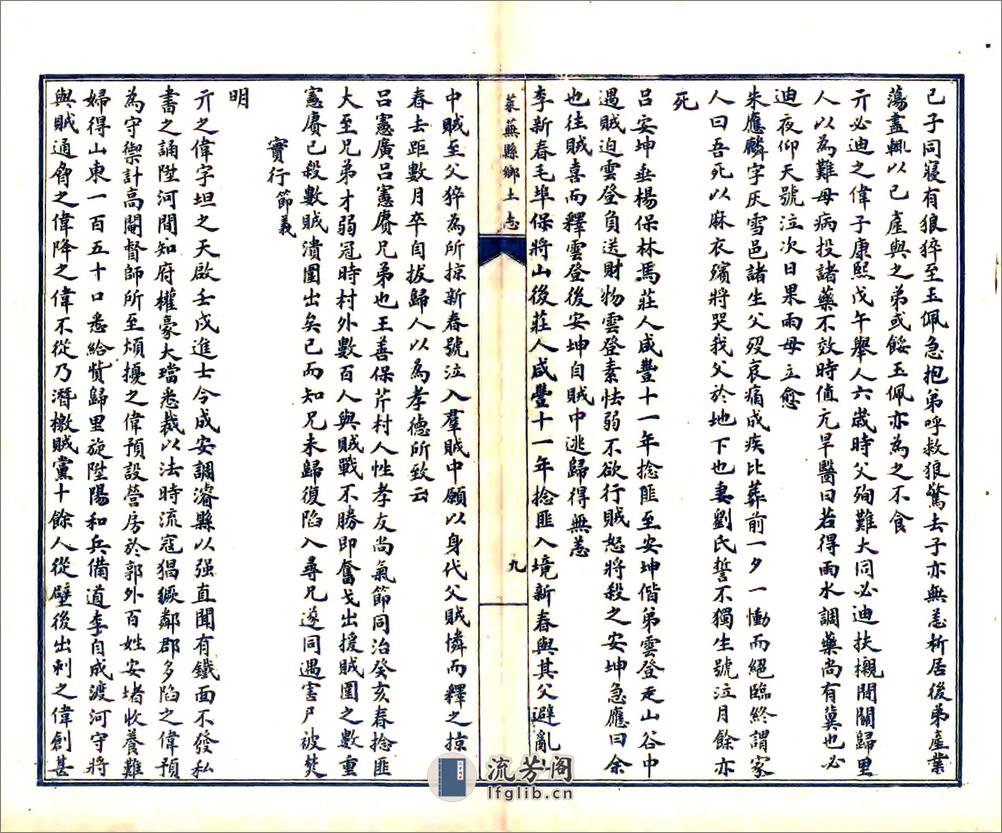 己子同寢有狼猝至玉佩急抱弟呼救狼驚去子亦無恙析居後弟產業
蕩盡輒以己產與之弟或餒玉佩亦為之不食
亓必迪之偉子康熙戊午舉人六歲時父殉難大同必迪扶櫬間關歸里
人以為難母病投諸藥不效時值亢旱醫曰若得雨水調藥尚有冀也必
迪夜仰天號泣次日果雨母立愈
朱應麟字灰雪邑諸生父歿哀痛成疾比葬前一夕一慟而絕臨終謂家
人曰吾死以麻衣殯將哭我父於地下也妻劉氏誓不獨生號泣月餘亦
死
呂安坤垂楊保林馬莊人咸豐十一年捻匪至安坤偕弟雲登走山谷中
遇賊迫雲登負送財物雲登素怯弱不欲行賊怒將殺之安坤急應曰余
也往賊喜而釋雲登後安坤自賊中逃歸得無恙
李新春毛埠保將山後莊人咸豐十一年捻匪入境新春與其父避亂山
萊蕪縣鄉土志
九
中賊至父猝為所掠新春號泣入羣賊中願以身代父賊憐而釋之掠新
春去距數月卒自拔歸人以為孝德所致云
呂憲廣呂憲賡兄弟也王善保芹村人性孝友尚氣節同治癸亥春捻匪
大至兄弟才弱冠時村外數百人與賊戰不勝即奮戈出援賊圍之數重
憲賡已殺數賊潰圍出矣已而知兄未歸復陷入尋兄遂同遇害尸被焚
實行節義
明
亓之偉字坦之天啟壬戌進士令成安調濬縣以强直聞有鐵面不發私
書之誦陞河間知府權豪大璫悉裁以法時流寇猖獗鄰郡多陷之偉預
為守禦計高閹督師所至煩擾之偉預設營房於郭外百姓安堵收養難
婦得山東一百五十口悉給貲歸里旋陞陽和兵備道李自成渡河守將
與賊通脅之偉降之偉不從乃潛檄賊黨十餘人從壁後出刺之偉創甚
流芳阁
lfglib.cn